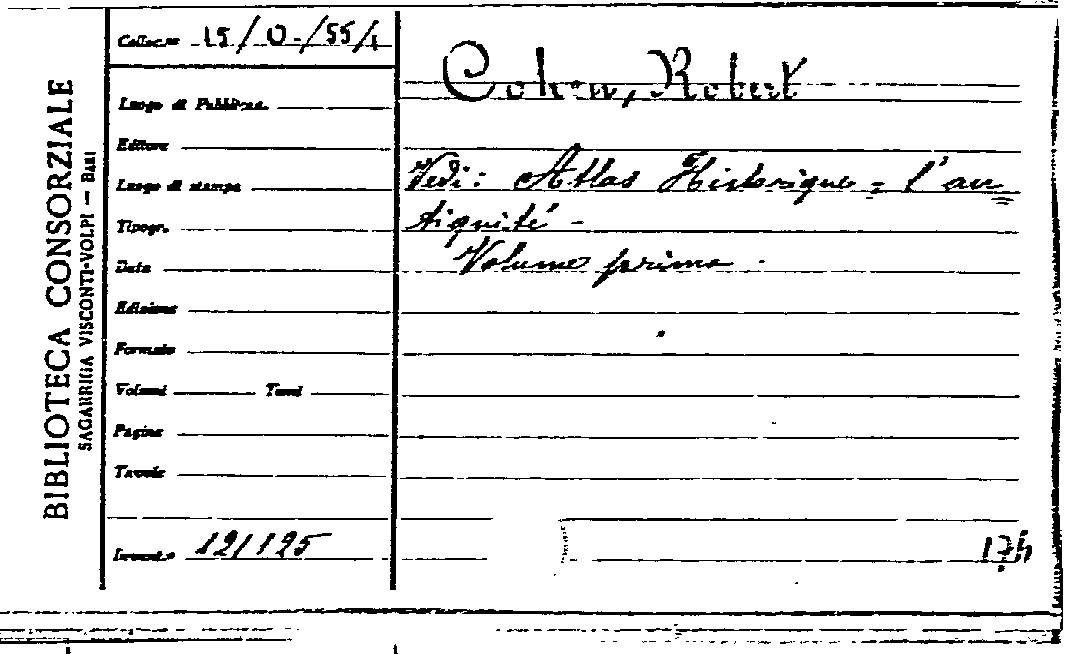 BIBLIOTECA CONSORZIALE
SAGARRIGA VISCONTI-VOLPI — BARI
Colloc.ne 15/O-/55/1
Luogo di Pubblicaz.
Editore
Luogo di stampa
Tipogr.
Data
Edizione
Formato
Volumi Tomi
Pagine
Tavole
Invent.o 121125
Cohen, Robert
Vedi: Atlas Historique = l'an=
tiquité -
Volume primo .